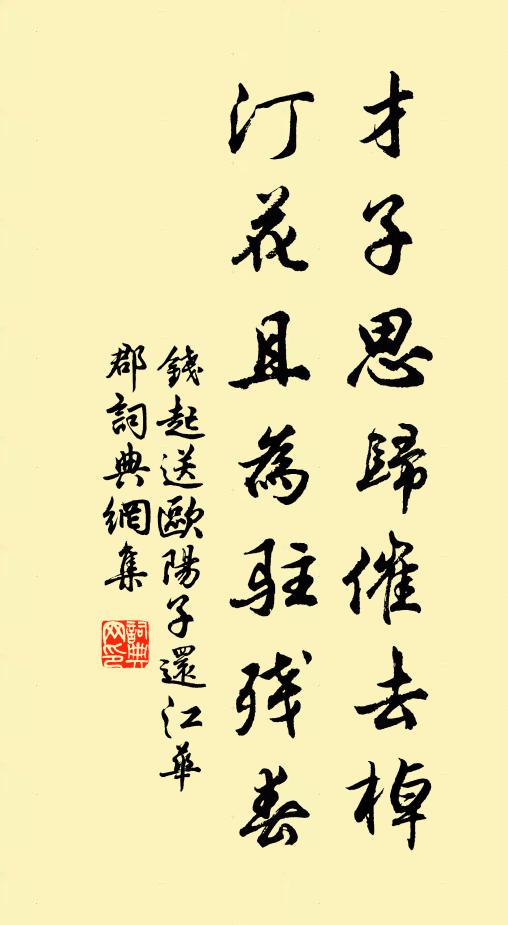 才子思歸催去棹
汀花且為駐殘春
錢起送歐陽子還江華
郡詞典網集
詞典網印